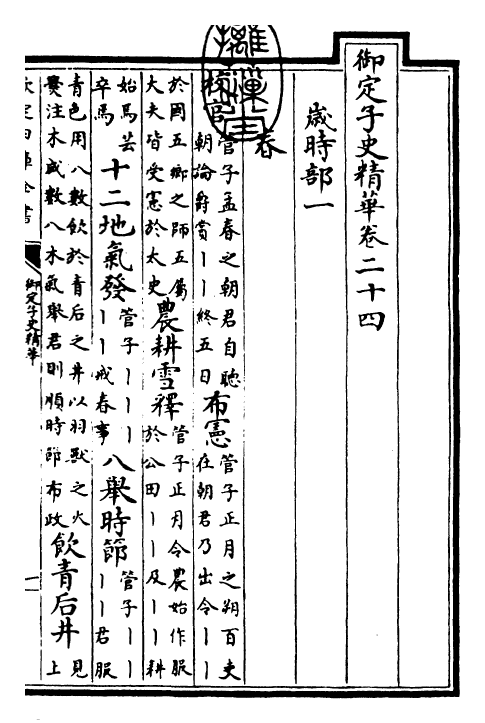 御定子史精華卷二十四
歲時部一
春
校官管子孟春之朝君自聽朝論爵賞丨丨終五日布憲管子正月之朔百吏在朝君乃出令丨丨
於國五鄉之師五屬大夫皆受憲於太史農耕雪釋管子正月令農始作服於公田丨丨及丨丨耕
始焉芸卒焉十二地氣發管子丨丨丨丨丨戒春事八舉時節管子丨丨丨丨君服
青色用八數飲於青后之井以羽獸之火爨注木成數八木氣舉君則順時節布政飲青后井見上
欽定四庫全書
御定子史精華
一